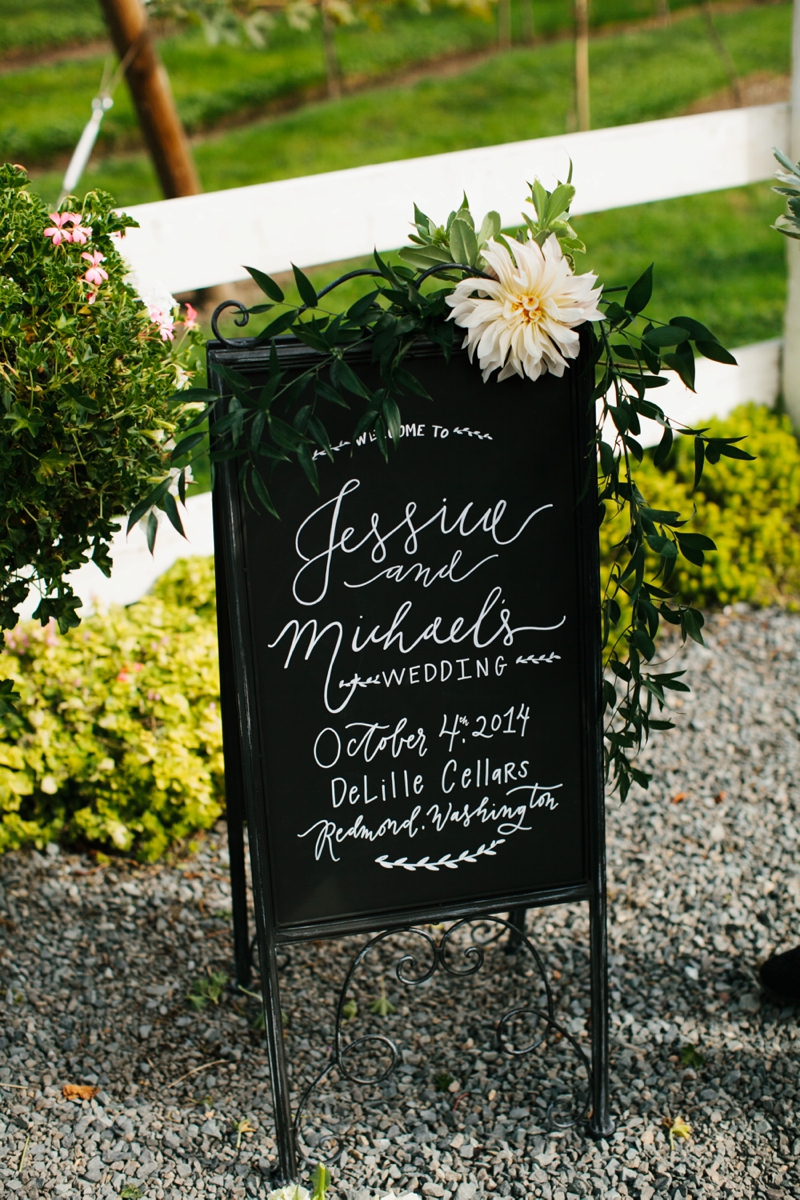 WELCOME TO
Jessica
and
Michael's
WEDDING
October 4th, 2014
DeLille Cellars
Redmond, Washington